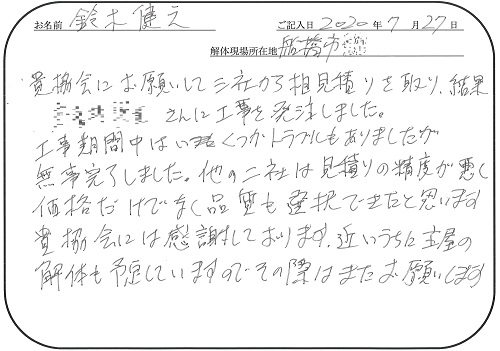 お名前 鈴木健之 ご記入日 2020年7月27日
解体現場所在地 船橋市
貴協会にお願いして三社から相見積りを取り、結果
さんに工事を発注しました。
工事期間中はいくつかトラブルもありましたが
無事完了しました。他の二社は見積りの精度が悪く
価格だけでなく品質も選択できたと思います
貴協会には感謝しております。近いうちに母屋の
解体も予定していますのでその際はまたお願いします